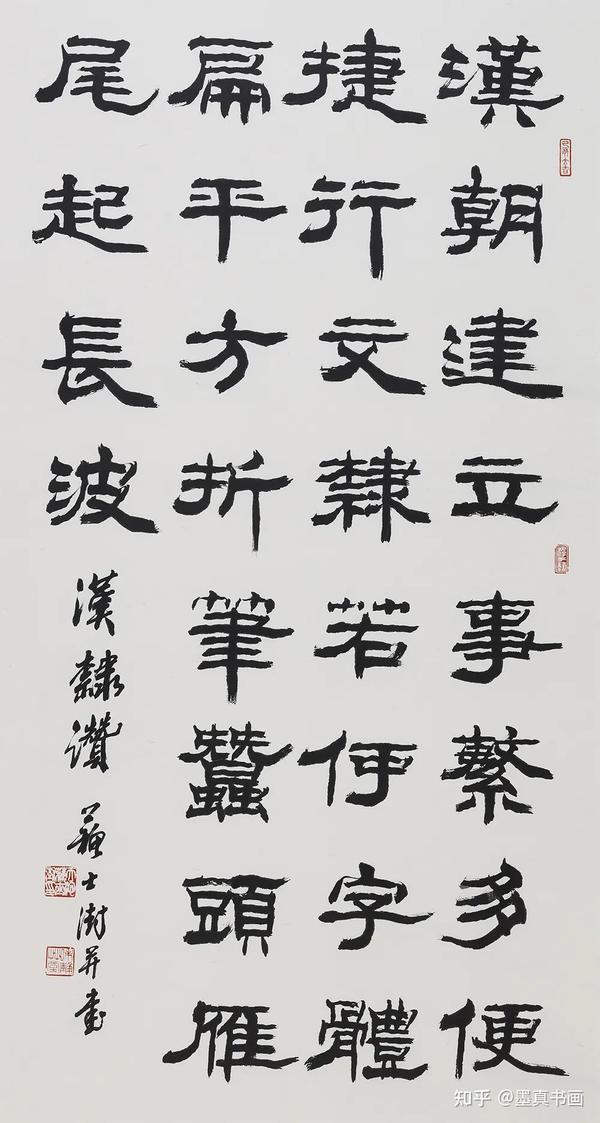 漢朝建立事繁多便
捷行文隸若何字體
扁平方折筆蠶頭雁
尾起長波
漢隸讚 蘇士澍并書
知乎 @墨真书画